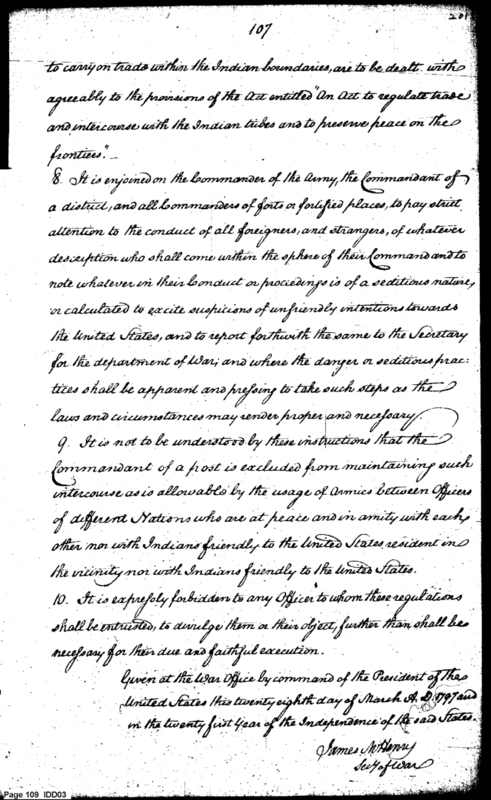 107
201
to carry on trade within the Indian boundaries, are to be dealt with
agreeably to the provisions of the Act entitled "An Act to regulate trade
and intercourse with the Indian tribes and to preserve peace on the
frontiers".
8. It is enjoined on the Commander of the Army, the Commandant of
a district, and all Commanders of forts or fortified places, to pay strict
attention to the conduct of all foreigners, and strangers, of whatever
description who shall come within the sphere of their Command and to
note whatever in their Conduct or proceedings is of a seditious nature,
or calculated to excite suspicions of unfriendly intentions towards
the United States, and to report forthwith the same to the Secretary
for the department of War; and where the danger or seditious prac-
tices shall be apparent and pressing to take such steps as the
laws and circumstances may render proper and necessary.
9. It is not to be understood by these instructions that the
Commandant of a post is excluded from maintaining such
intercourse as is allowable by the usage of Armies between Officers
of different Nations who are at peace and in amity with each
other nor with Indians friendly to the United States, resident in
the vicinity nor with Indians friendly to the United States.
10. It is expressly forbidden to any Officer to whom these regulations
shall be entrusted, to divulge them or their object, further than shall be
necessary for their due and faithful execution.
Given at the War Office by command of the President of the
United States this twenty eighth day of March A.D. 1797 and
in the twenty first Year of the Independence of the said States.
James McHenry
Secy of War
Page 109 IDD03